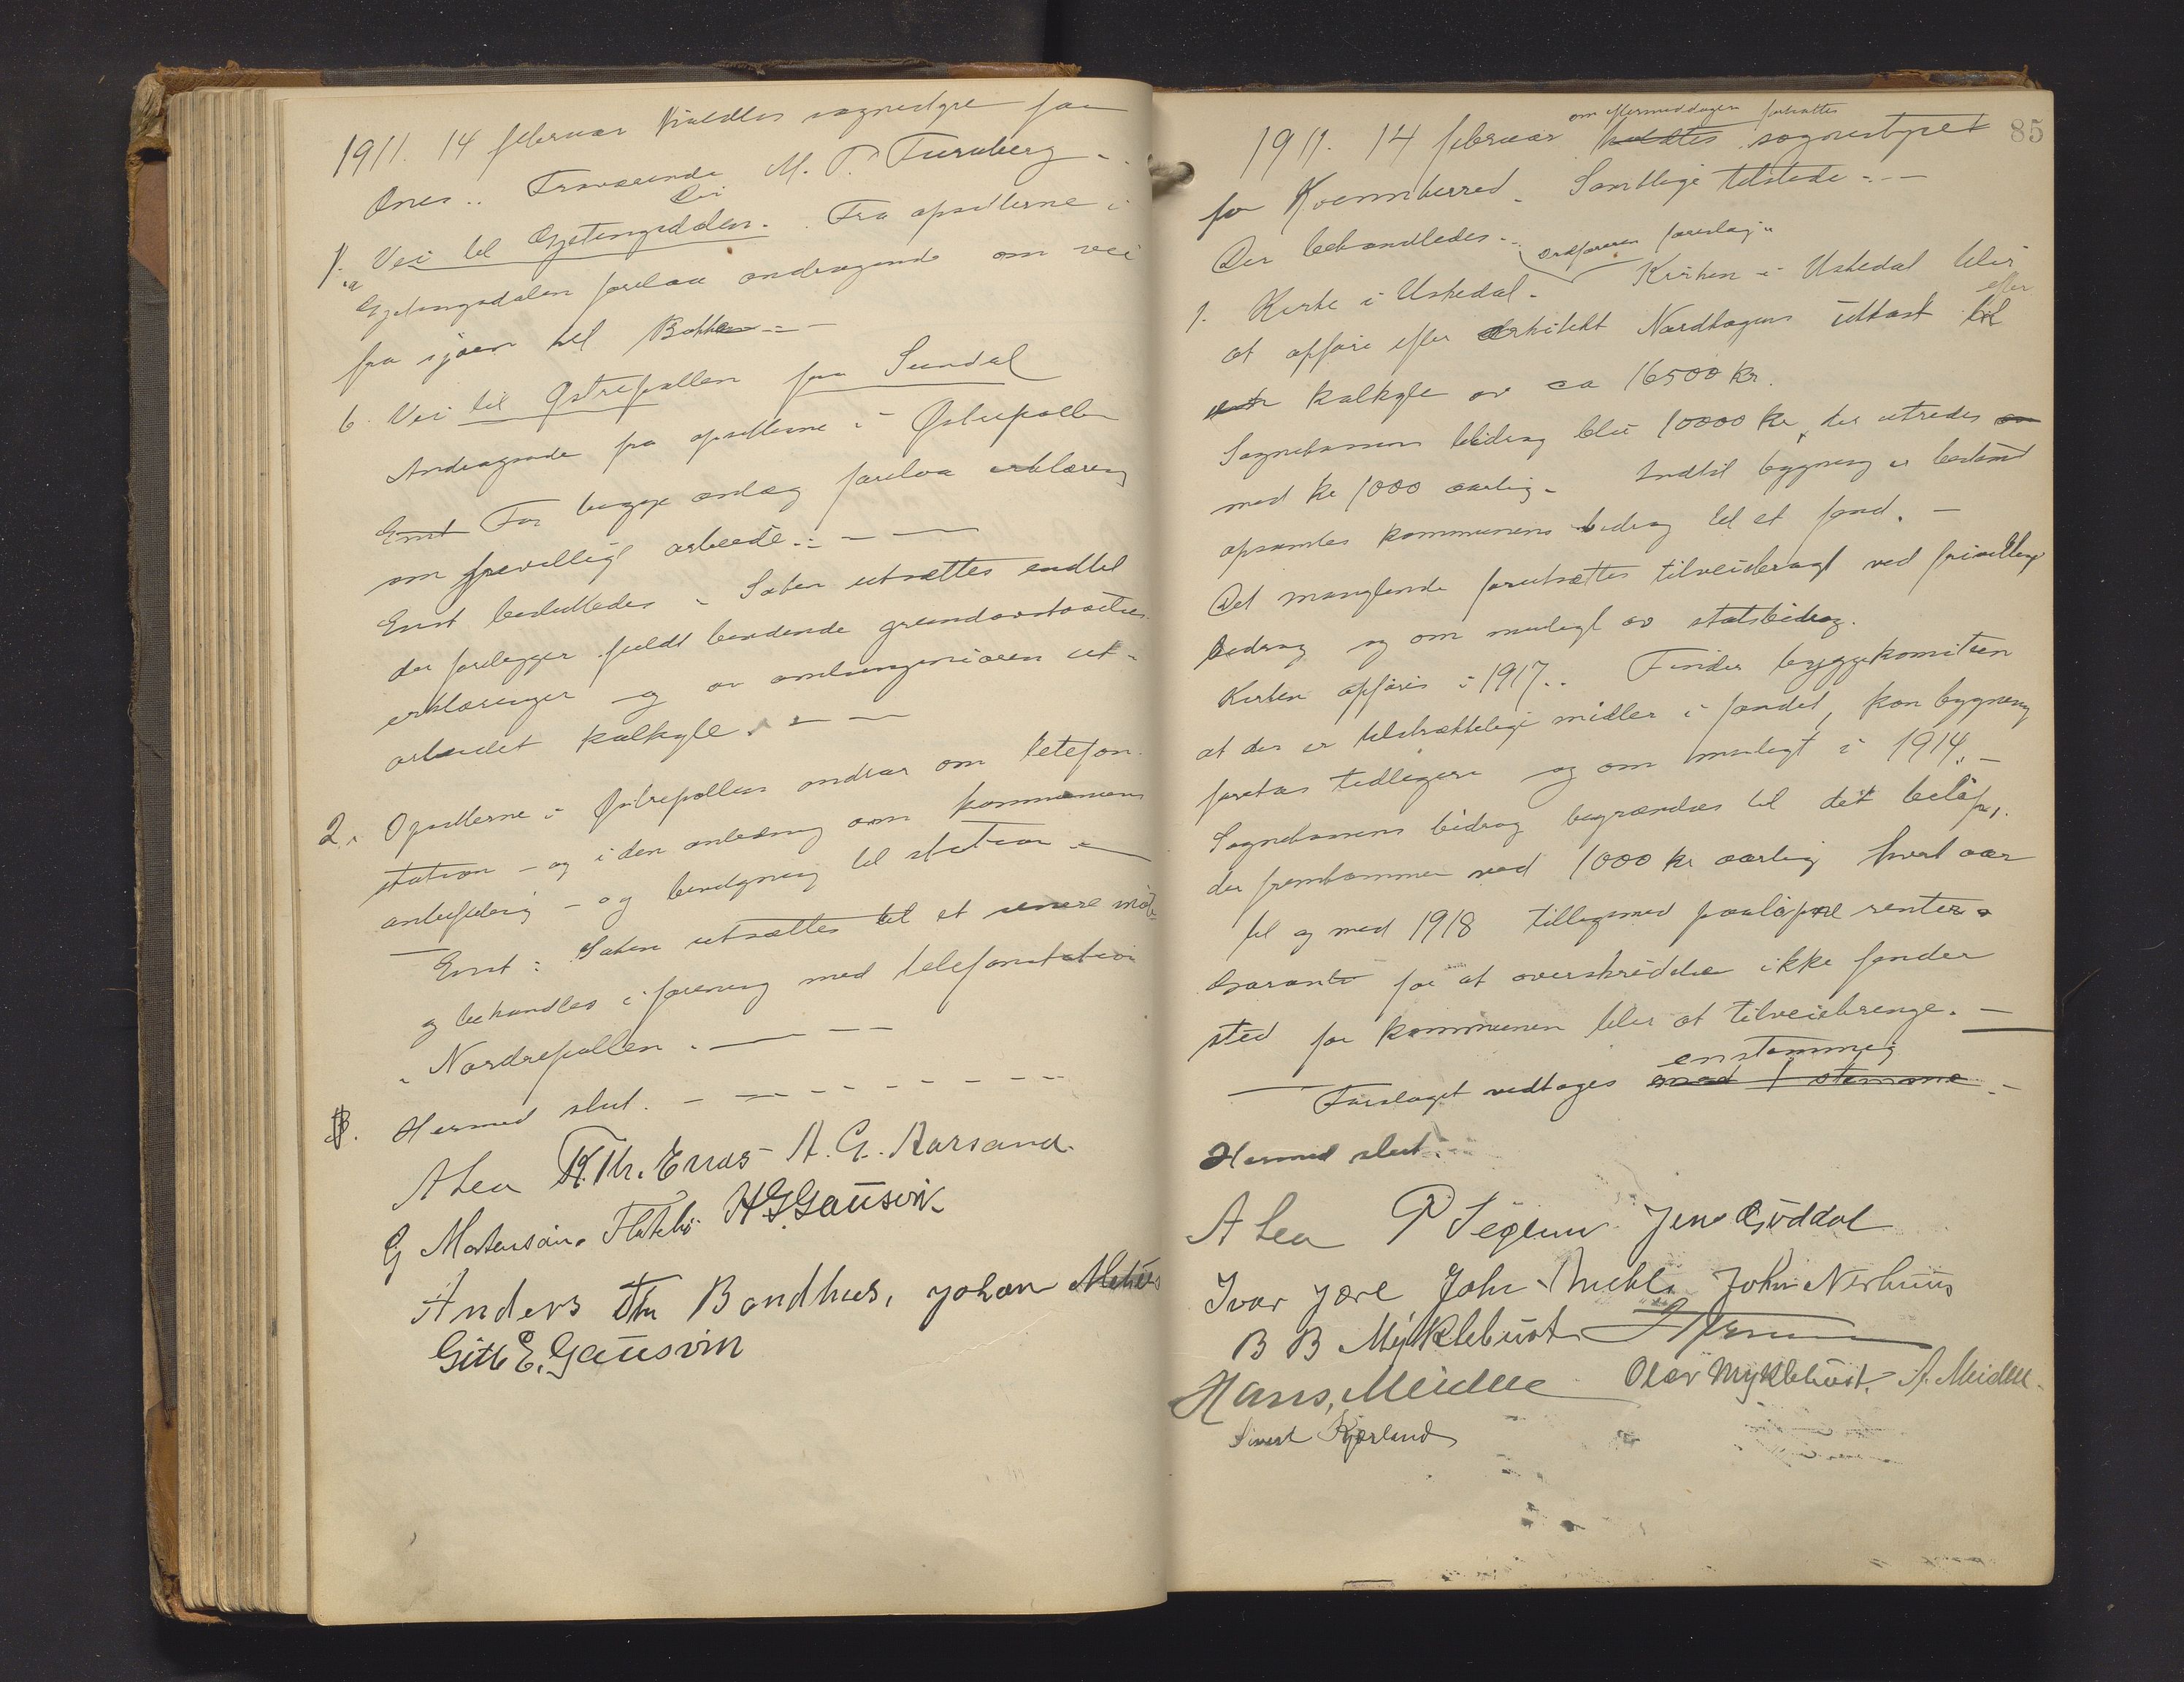 1911. 14 februar holdtes sognestyre for
Ænes.. Fraværende M. P. Furuberg - .
Vei
1. Vei til Gjetingsdalen. Fra opsitterne i
a
Gjetingsdalen forelaa andragende om vei
fra sjøen til Bakken - -
b. Vei til Østrepollen fra Sundal
Andragende fra opsitterne i Østrepollen
Enst For begge anlæg forelaa erklæring
om frevilligt arbeide. - - -
Enst besluttedes - Saken utsættes indtil
der forelægger fuldt bindende grundavstaaelses
erklæringer og av amtsingeniøren ut-
arbeidet kalkyle. - -
2. Opsitterne i Østrepollen andrar om telefon-
station - og i den anledning om kommunens
anbefaling - og bevilgning til station -
Enst: Saken utsættes til et senere møte
og behandles i forening med telefonstation
i Nordrepollen. - - -
Hermed slut. - - - - - - - -
A Lea K. Th. Ernes A. G. Aarsand
G Mortensøn. Flatebø H G Gausvik
Anders Th Bondhus, Johan
Gitle E. Gausvik
85
om eftermiddagen fortsattes
1911. 14 februar holdtes sognestyret
for Kvinnherred. Samtlige tilstede - -
Der behandledes - ordførerens forslag:
1. Kirke i Uskedal - Kirken i Uskedal blir
at opføre efter arkitekt Nordhagens utkast til
efter
kalkyle av ca 16500 kr.
Sognekassens bidrag blir 10000 kr, der utredes
med kr 1000 aarlig - Indtil bygning er bestemt
opsamles kommunens bidrag til et fond. -
Det manglende forutsættes tilveiebragt ved frivillige
bidrag og om muligt av statsbidrag.
Kirken opføres i 1917.. Finder byggekomiteen
at der er tilstrækkelige midler i fondet, kan bygning
foretas tidligere og om muligt i 1914. -
Sognekassens bidrag begrændses til det beløp,
der fremkommer ved 1000 kr aarlig hvert aar
til og med 1918 tillagtmed paaløpne renter
Garanti for at overskridelse ikke finder
sted for kommunen blir at tilveiebringe. -
enstemmig
Forslaget vedtages med 1 stemme -
Hermed slut.
A Lea P Seglem Jens Guddal
Ivar Jære Johs John Nerhuus
B B Myklebust
Hans, Meidell Olav Myklebust. A. Meidell.
Sivert Kjærland